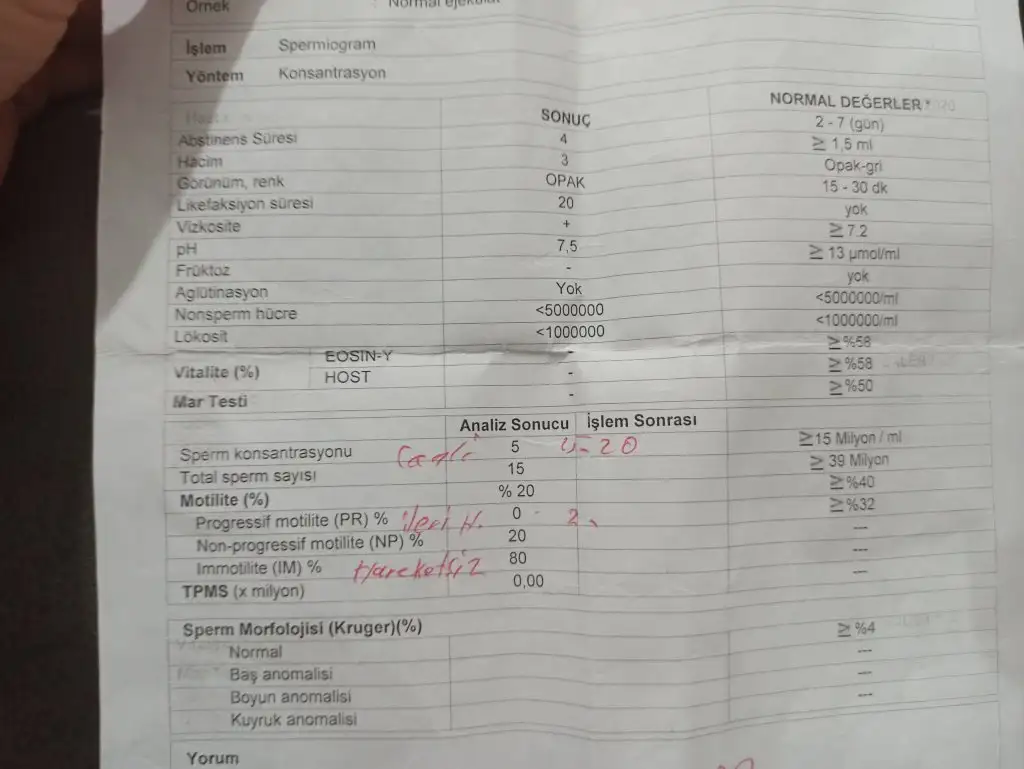 Örnek : Normal ejekülat
İşlem Spermiogram
Yöntem Konsantrasyon
SONUÇ NORMAL DEĞERLER *
Abstinens Süresi 4 2 - 7 (gün)
Hacim 3 ≥ 1,5 ml
Görünüm, renk OPAK Opak-gri
Likefaksiyon süresi 20 15 - 30 dk
Vizkosite + yok
pH 7,5 ≥ 7.2
Früktoz - ≥ 13 µmol/ml
Aglütinasyon Yok yok
Nonsperm hücre <5000000 <5000000/ml
Lökosit <1000000 <1000000/ml
Vitalite (%) EOSIN-Y - ≥%58
HOST - ≥%58
Mar Testi - ≥%50
Analiz Sonucu İşlem Sonrası
Sperm konsantrasyonu 5 20 ≥15 Milyon / ml
Total sperm sayısı 15 ≥ 39 Milyon
Motilite (%) % 20 ≥%40
Progressif motilite (PR) % ileri H. 0 2 ≥%32
Non-progressif motilite (NP) % 20 ---
Immotilite (IM) % Hareketsiz 80 ---
TPMS (x milyon) 0,00 ---
Sperm Morfolojisi (Kruger)(%) ≥%4
Normal ---
Baş anomalisi ---
Boyun anomalisi ---
Kuyruk anomalisi
Yorum